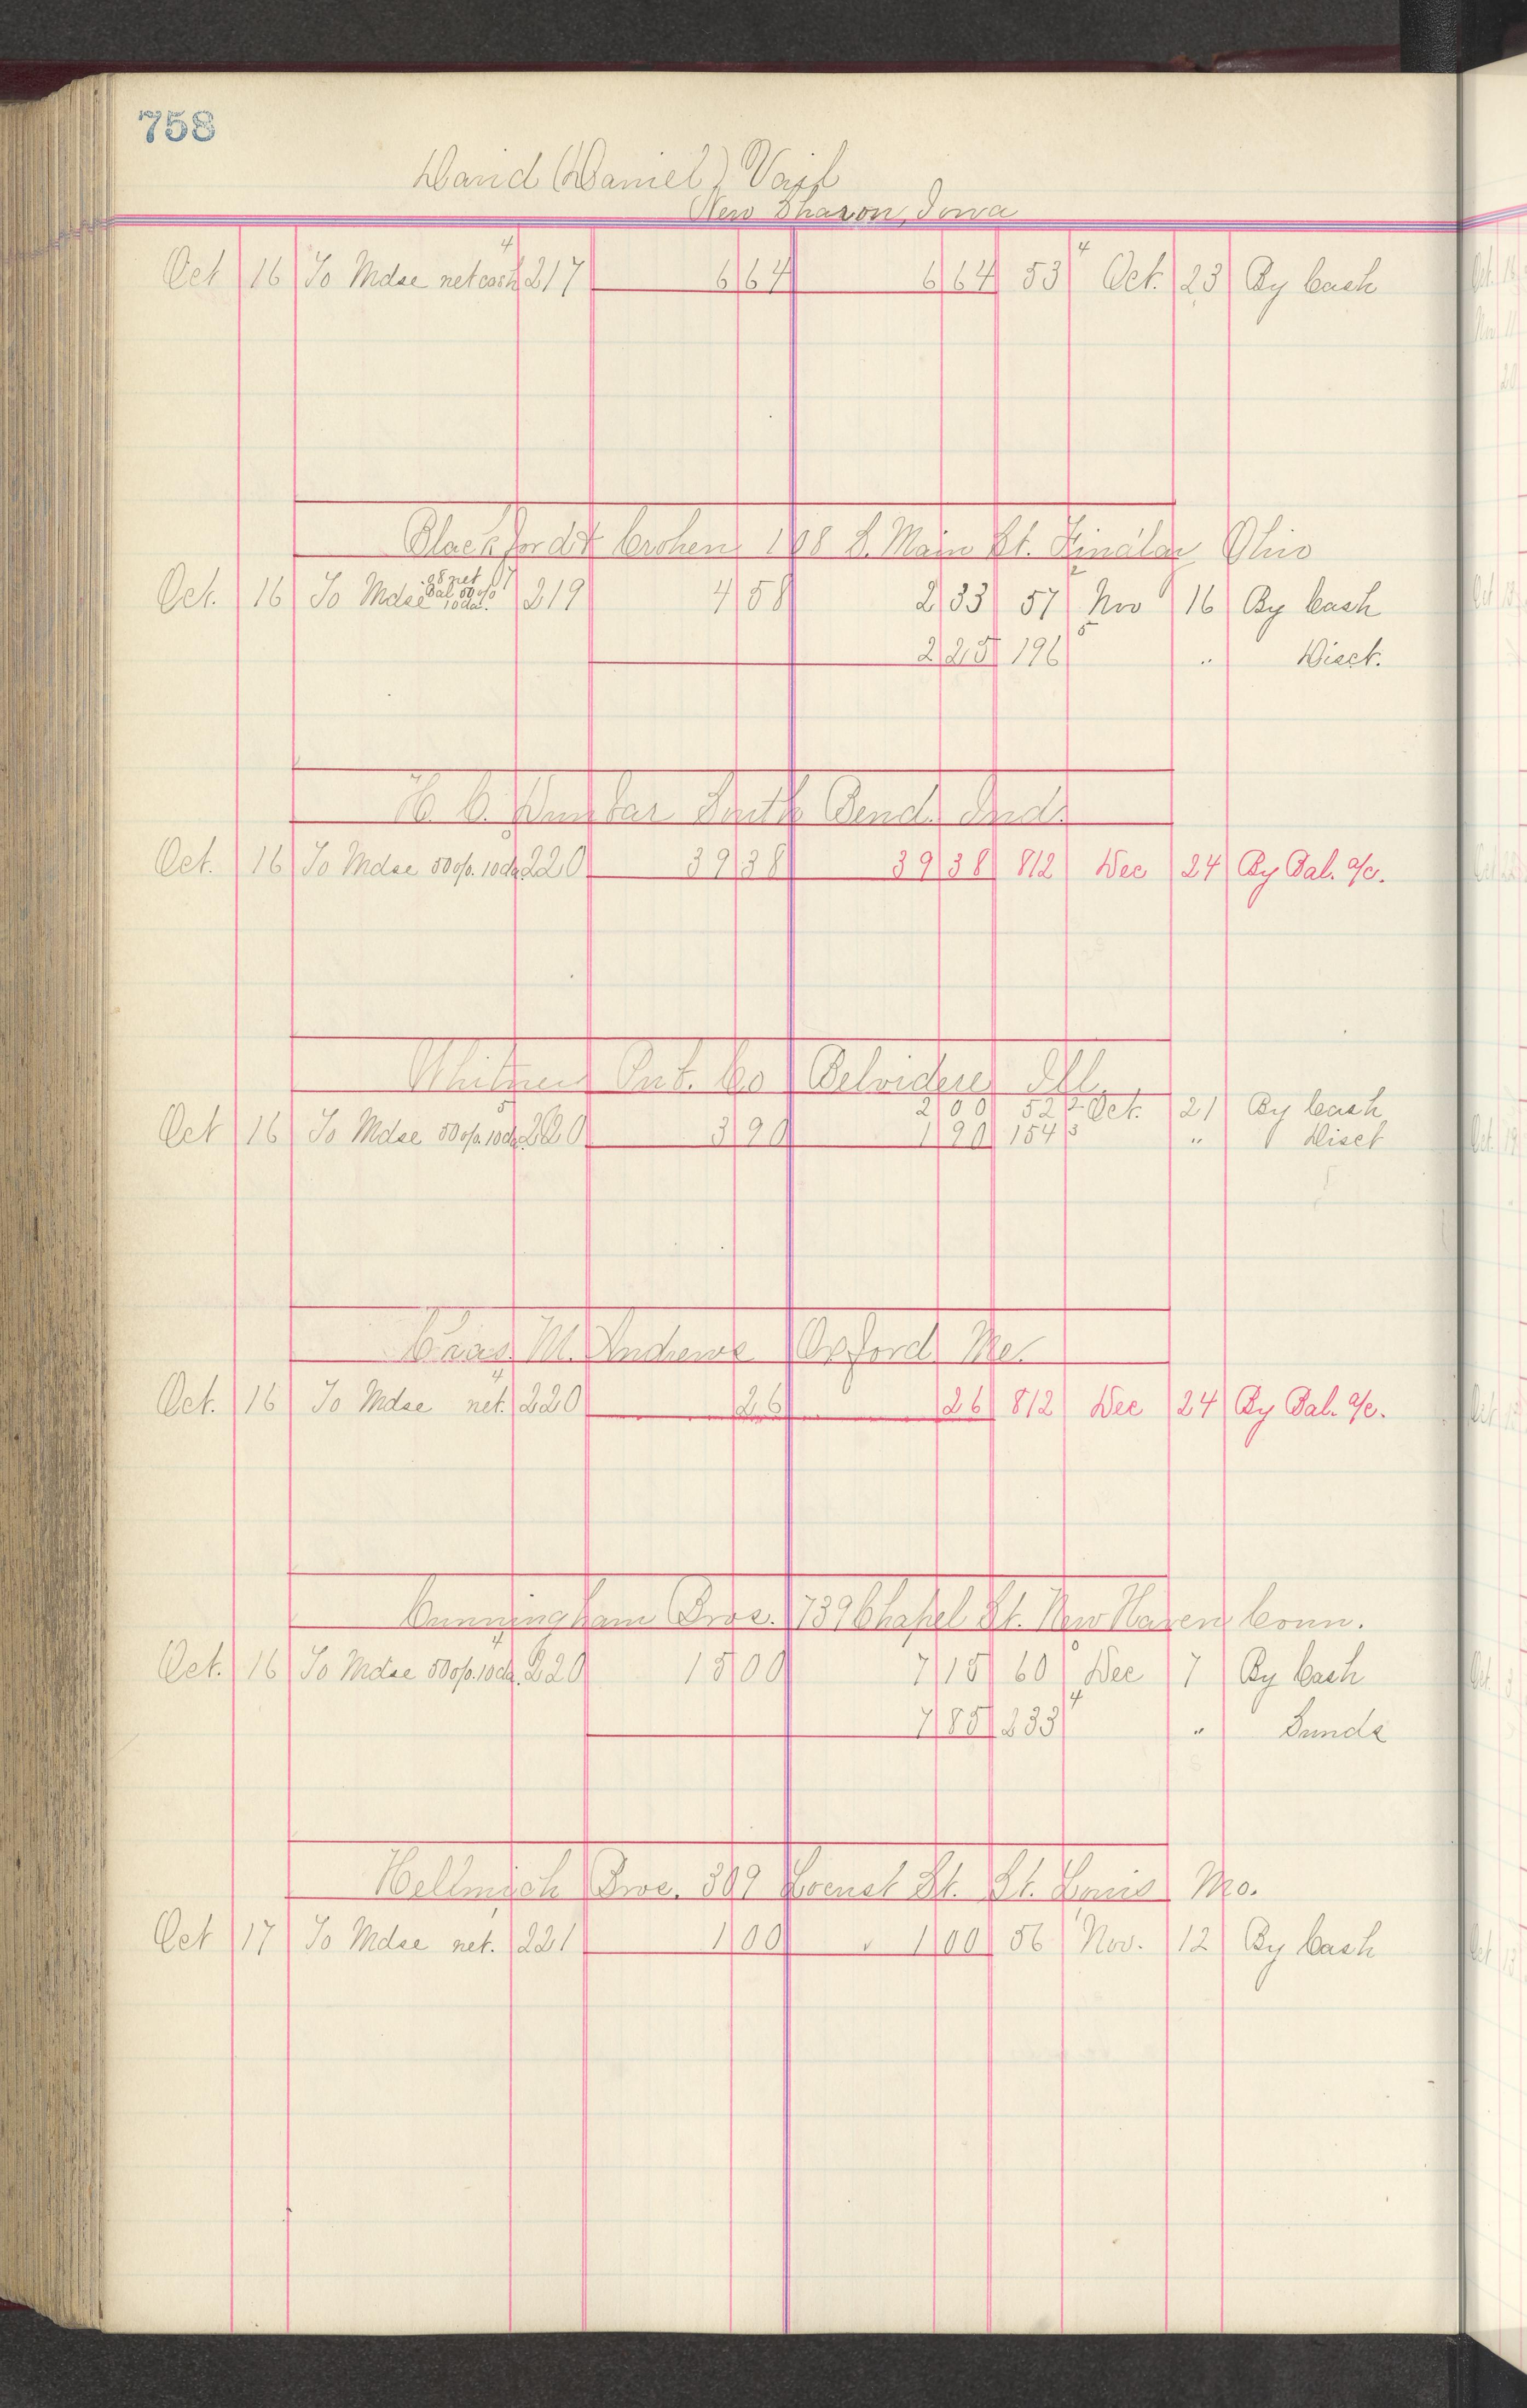 758
David (Daniel) Vail
New Sharon, Iowa
4
Oct 16 To Mdse net cash 217 6 64 6 64 53 4 Oct. 23 By Cash
108 S. Main St. Ohio
Oct. 16 To Mdse .08 net Bal. 50% 10 da. 219 4 58 2 33 57 2 Nov 16 By Cash
2 25 196 5 " Disct.
South Bend, Ind.
Oct. 16 To Mdse 50% 10 da 220 39 38 39 38 812 Dec 24 By Bal. a/c.
Pub. Co Belvidere Ill.
2 00 52 2 Oct. 21 By Cash
Oct 16 To Mdse 50% 10 da. 220 3 90 1 90 154 3 " Disct
Chas. M. Andrews Oxford Me.
Oct. 16 To Mdse net. 220 26 26 812 Dec 24 By Bal. a/c.
Cunningham Bros. 739 Chapel St. New Haven Conn.
Oct. 16 To Mdse 50% 10 da. 220 15 00 7 15 60 Dec 7 By Cash
7 85 233 4 " Sunds
Hellmich Bros. 309 Locust St. St. Louis Mo.
Oct 17 To Mdse net. 221 1 00 1 00 56 Nov. 12 By Cash